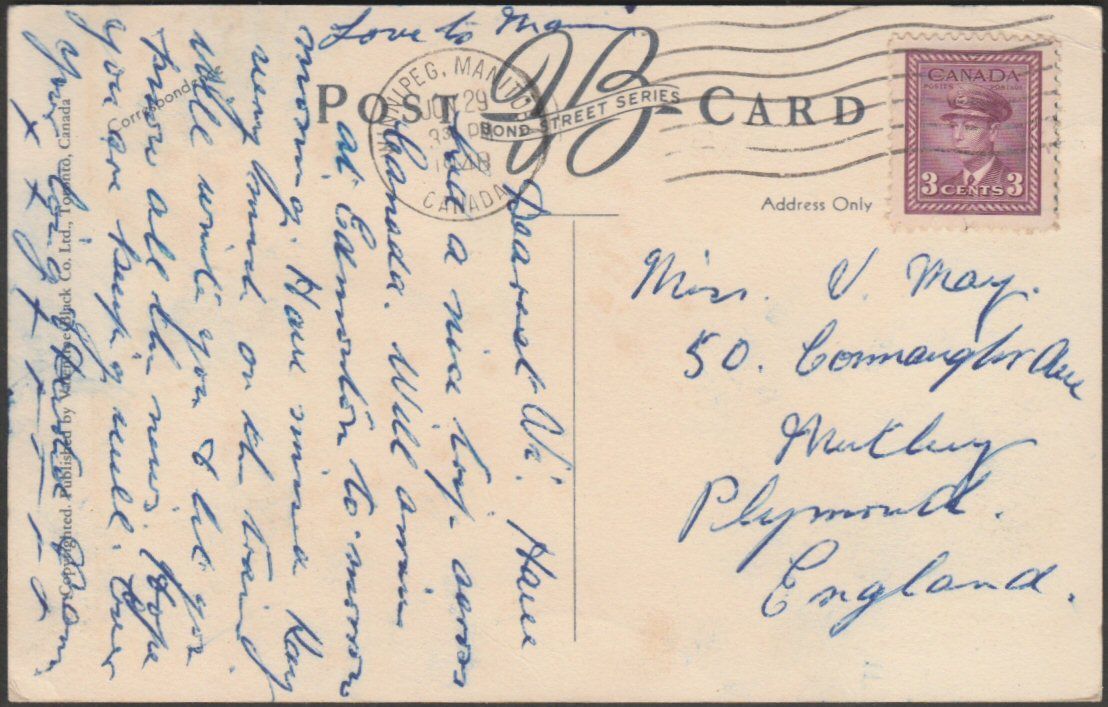 POST CARD
VB
BOND STREET SERIES
WINNIPEG, MANITOBA
JUN 29
PM
1948
CANADA
CANADA
POSTES POSTAGE
3 CENTS 3
Address Only
Correspondence
Miss. V. May.
50. Connaught Ave
Mutley
Plymouth.
England.
Dearest Vi. Have
had a nice trip across
Canada. Will arrive
at Edmonton to-morrow
morning. Have missed Ray
very much on the train
Will write you & let you
know all the news. Hope
you are keeping well. Ever
Your loving
x x x x x x x
Love to Mam
Copyrighted. Published by Valentine-Black Co. Ltd., Toronto, Canada